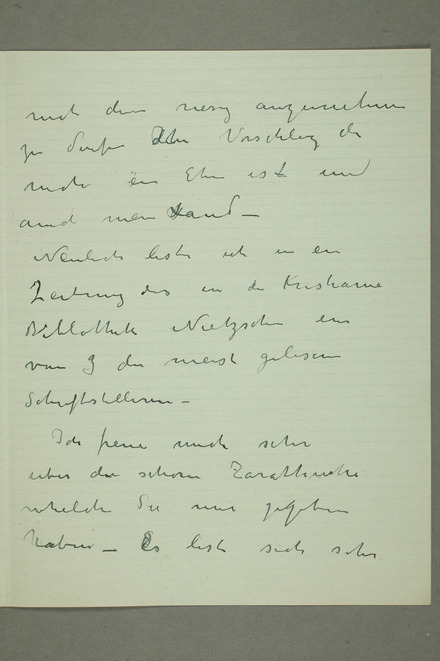 mich den
anzunehmen
zu dürfen Ihr Vorschlag der
mehr ein Ehre ist und
auch mein
Neulich leste ich in ein
Zeitung das in der Kristiania
Bibliothek Nietzsche ein
von 3 der meist gelesene
Schriftstellern –
Ich freue mich sehr
über die schöne Zarathustra
whelche Sie mir gegeben
haben – Es lest sich sehr